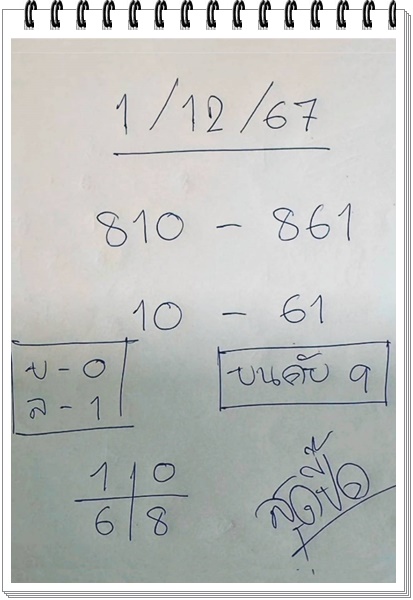 1/12/67
810 - 861
10 - 61
บ - 0
ล - 1
บนดับ 9
1 0
6 8
สุดปี๊ด